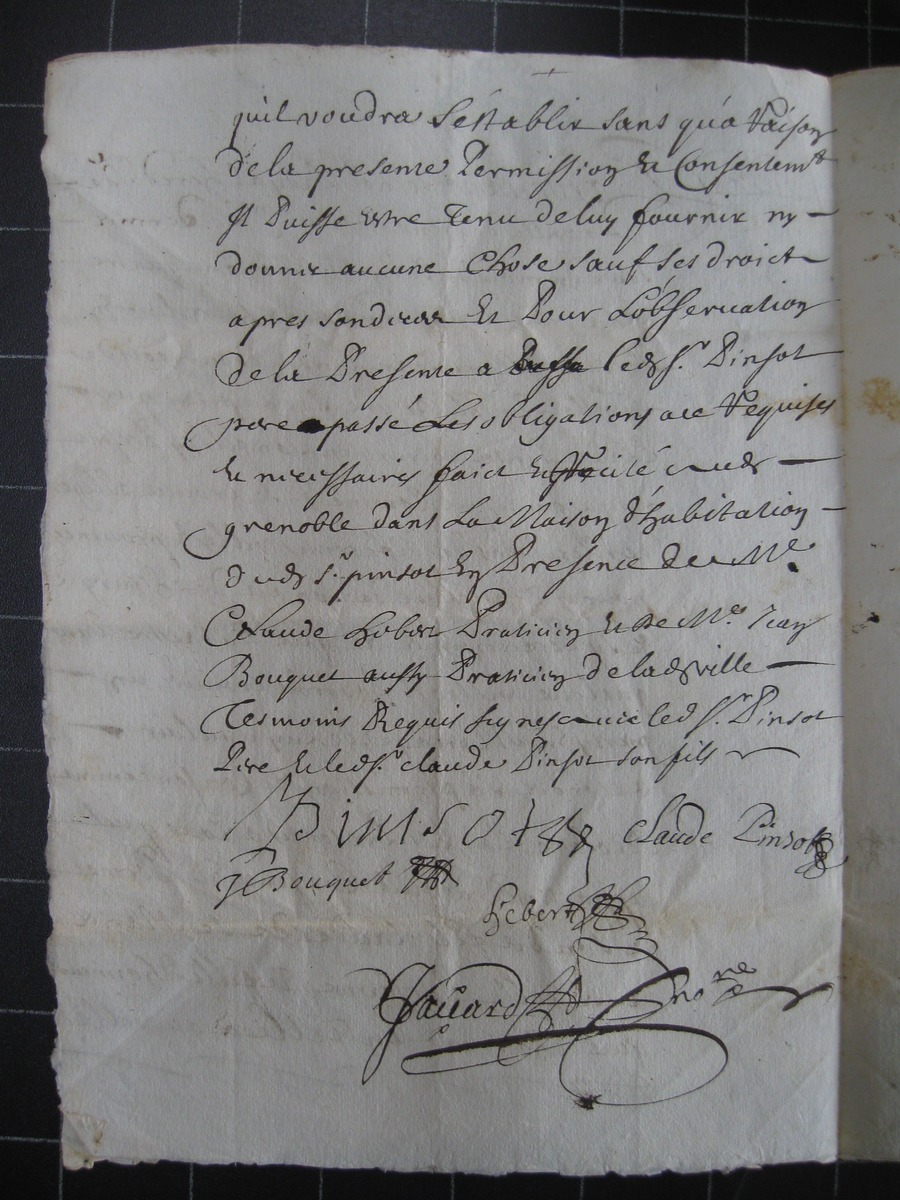 quil voudra s'establir sans qu'a Raison
de la presente Permission et Consentemt
Il Puisse estre Tenu de luy fournir ny
donner aucune Chose sauf ses droict
apres son et Pour L'observation
de la Presente a ledt Sr. Pinsot
pere passé Les obligations ace Requises
et necessaires faict et Recité audt
grenoble dans La Maison d'habitation
dudt Sr pinsot En Presence de Me
Claude hebert Praticien et de Me Jean
Bouquet aussy Praticien de ladt ville
Tesmoins Requis signes avec led Sr. Pinsot
Pere et led Sr claude Pinsot son fils
Pinsot claude Pinsot
J Bouquet
hebert
nore